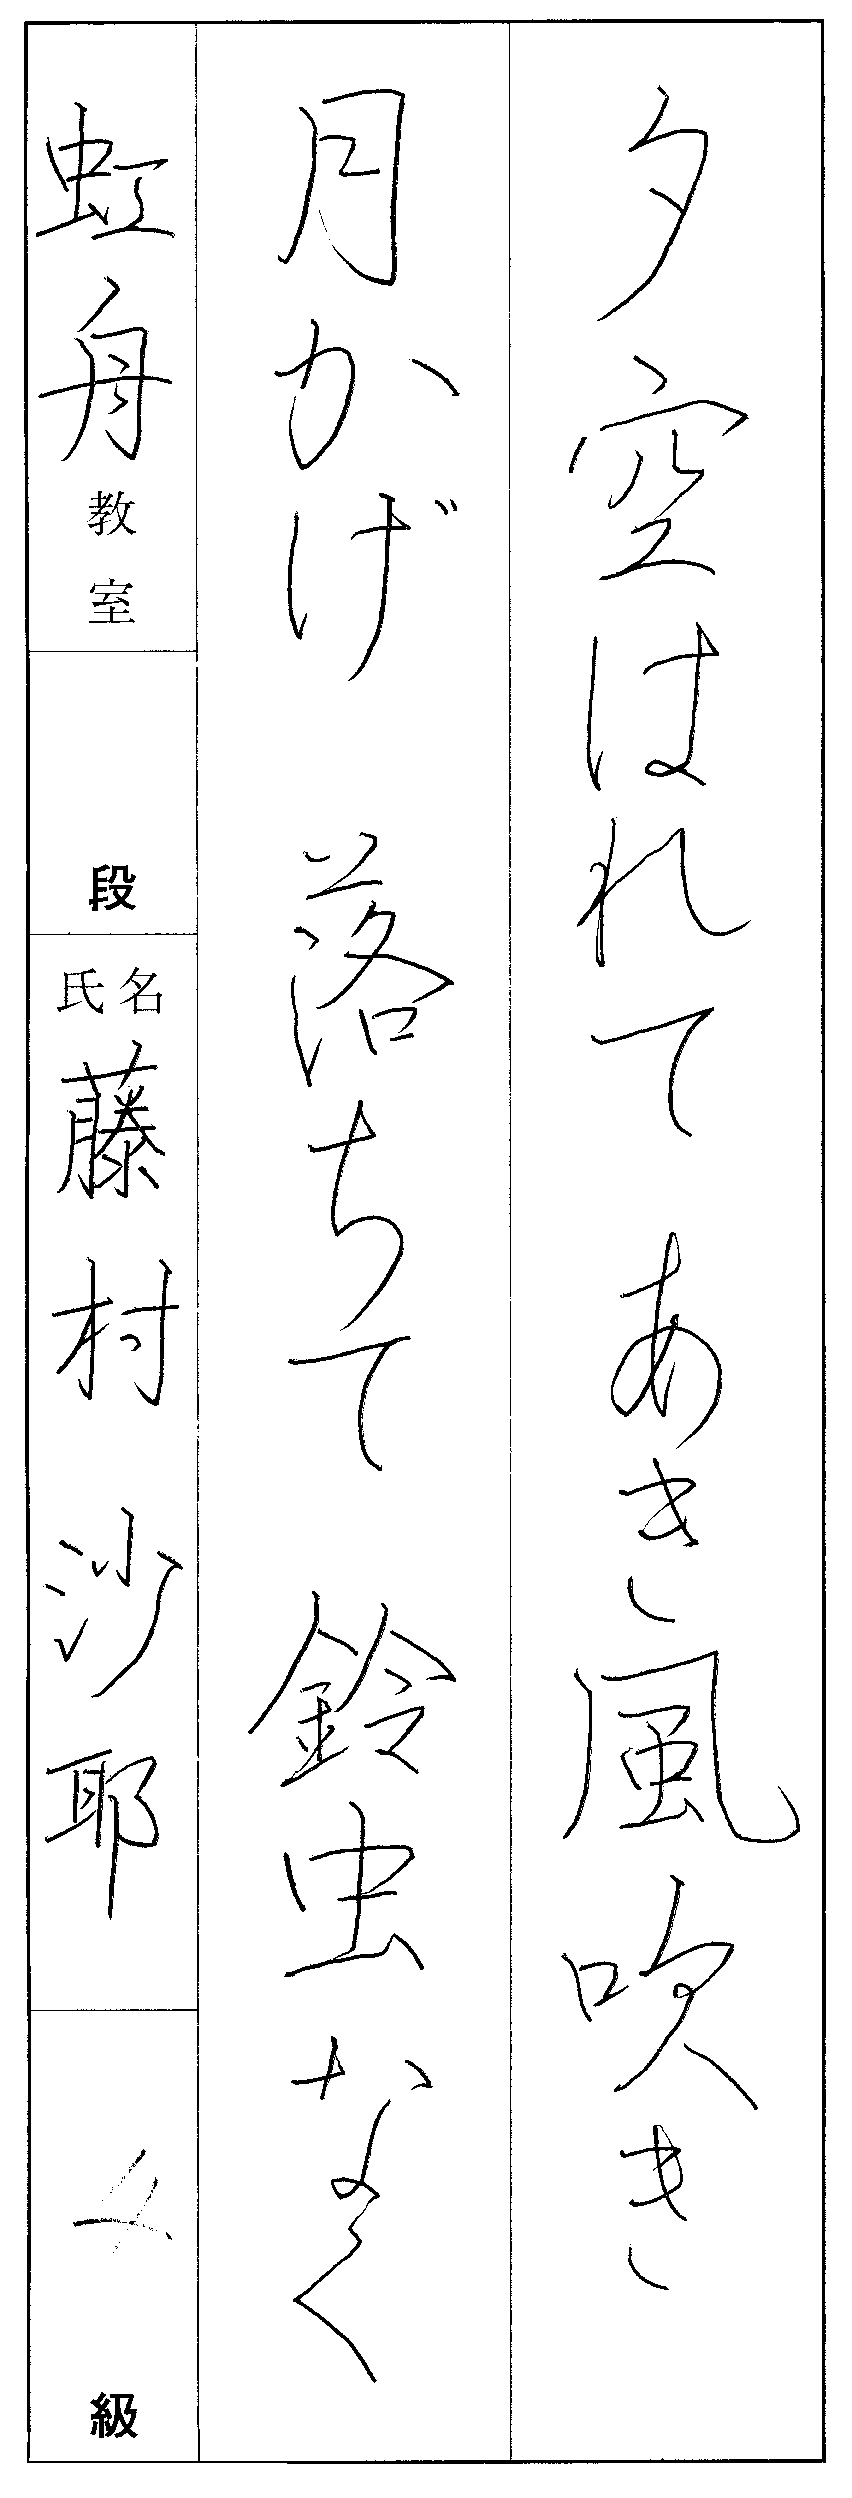 夕空はれて あき風吹き
月かげ 落ちて 鈴虫なく
虹舟教室
段
氏名 藤村 沙耶
級